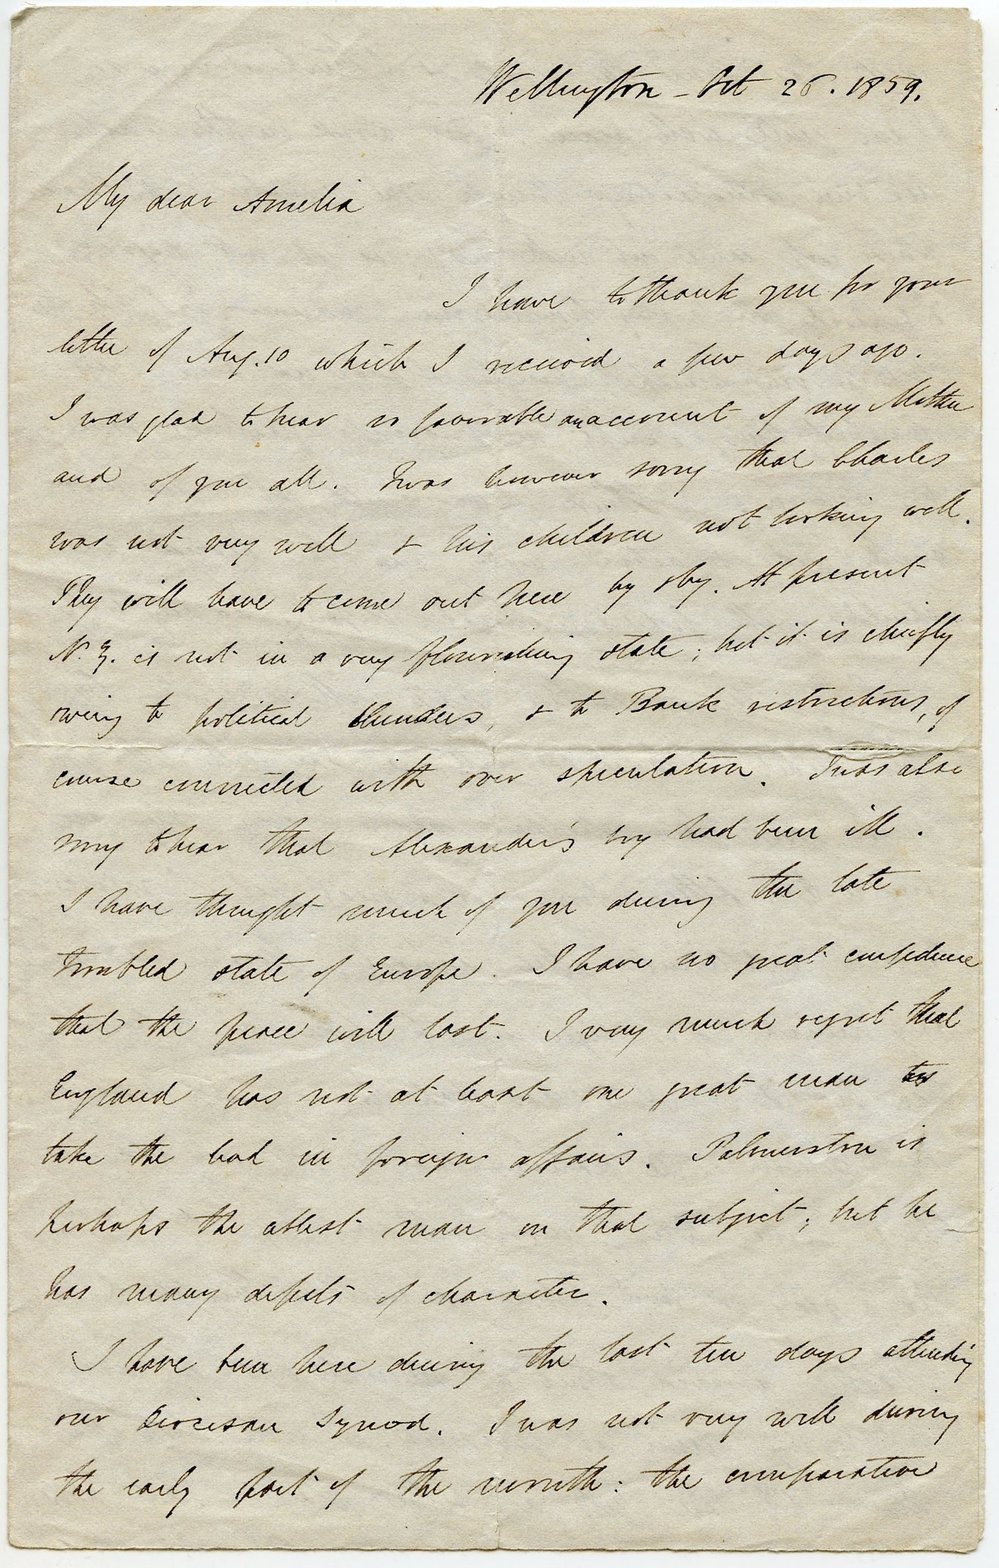 Wellington - Oct 26. 1859.
My dear Amelia
I have to thank you for your
letter of Aug. 10 which I received a few days ago.
I was glad to hear so favorable an account of my Mother
and of you all. I was however sorry that Charles
was not very well & his children not looking well.
They will have to come out here by & by. At present
N. Z. is not in a very flourishing state; but it is chiefly
owing to political blunders, & to Bank restrictions, of
course connected with over speculation. I was also
sorry to hear that Alexander's boy had been ill.
I have thought much of you during the late
troubled state of Europe. I have no great confidence
that the peace will last. I very much regret that
England has not at least one great man to
take the lead in foreign affairs. Palmerston is
perhaps the ablest man on that subject; but he
has many defects of character.
I have been here during the last ten days attending
our Diocesan Synod. I was not very well during
the early part of the month: the comparative